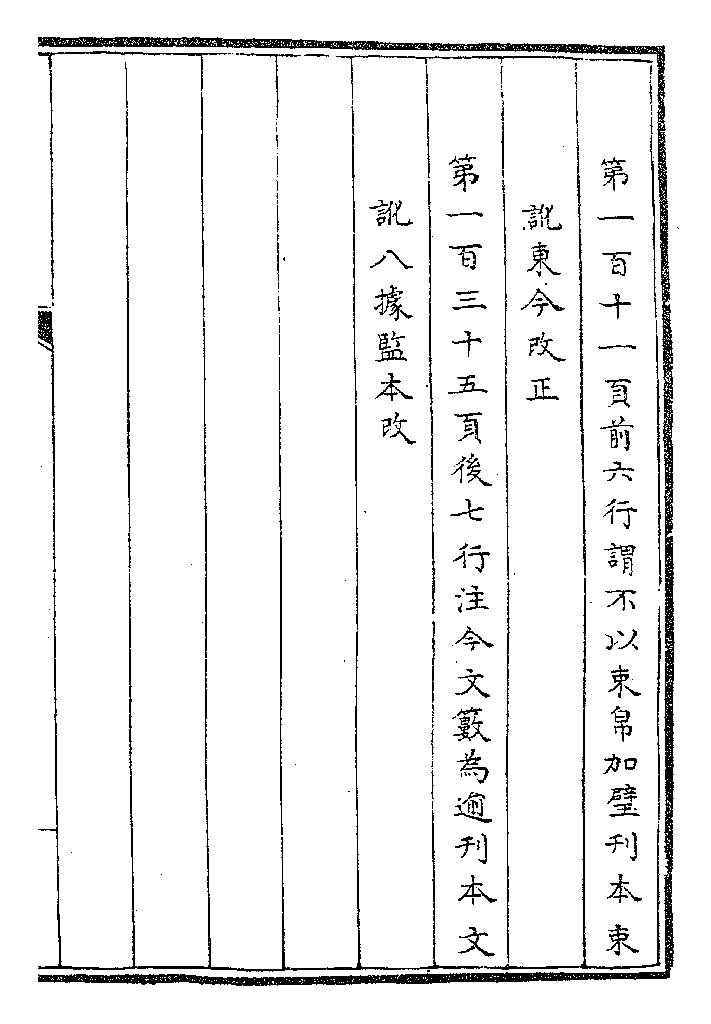 第一百十一頁前六行謂不以束帛加璧刊本束
訛東今改正
第一百三十五頁後七行注今文籔為逾刊本文
訛八據監本改